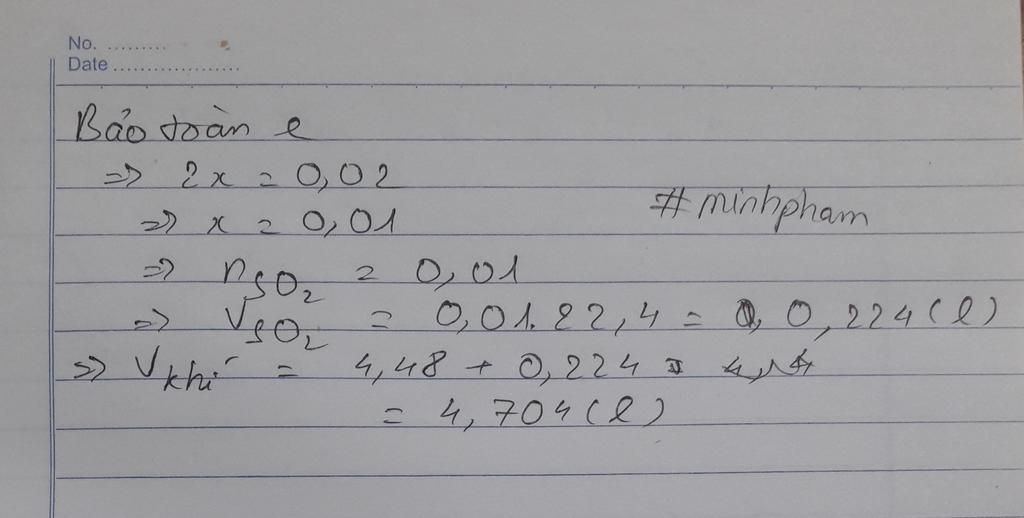 No. ..........
Date ....................
Bảo toàn e
=> 2x = 0,02
=> x = 0,01
#minhpham
=> nSO2 = 0,01
=> VSO2 = 0,01.22,4 = 0,224 (l)
=> Vkhí = 4,48 + 0,224
= 4,704 (l)